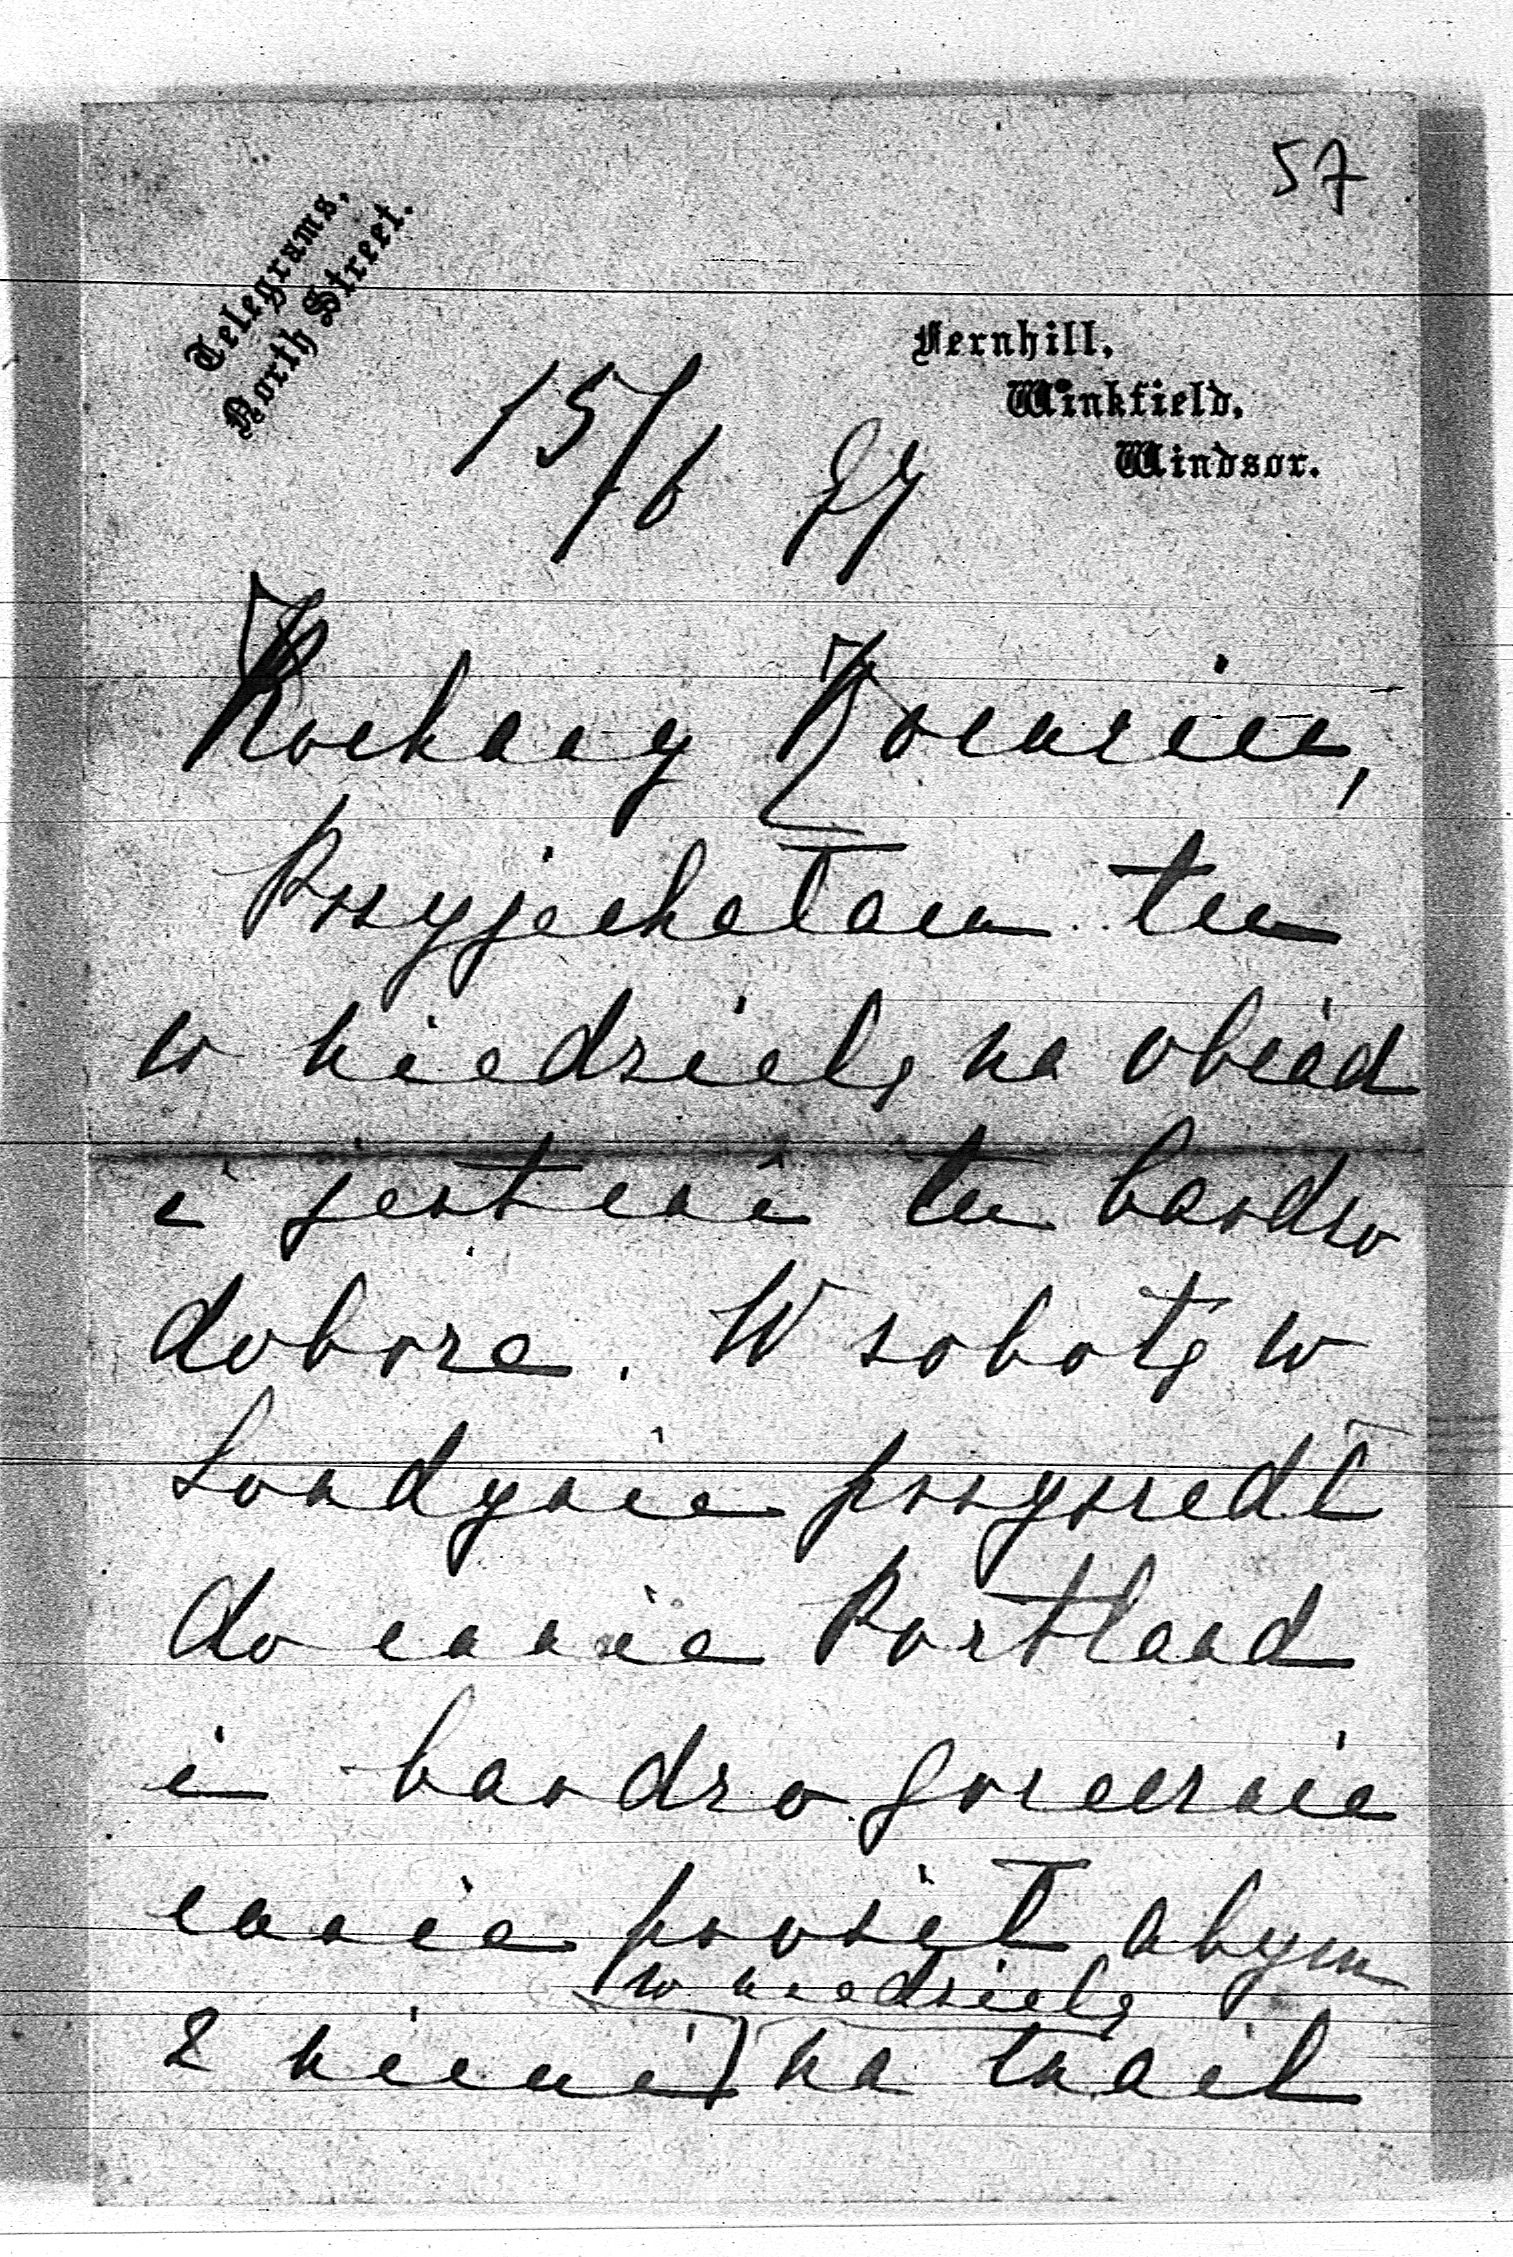 57
Telegrams,
North Street.
Fernhill,
Winkfield,
Windsor.
15/6 97
Kochany
Przyjechałam tu
w niedzielę na obiad
i jest mi tu bardzo
dobrze. W sobotę w
Londynie przyszedł
do mnie Portland
i bardzo grzecznie
mnie prosił abym
w niedzielę
z niemi na